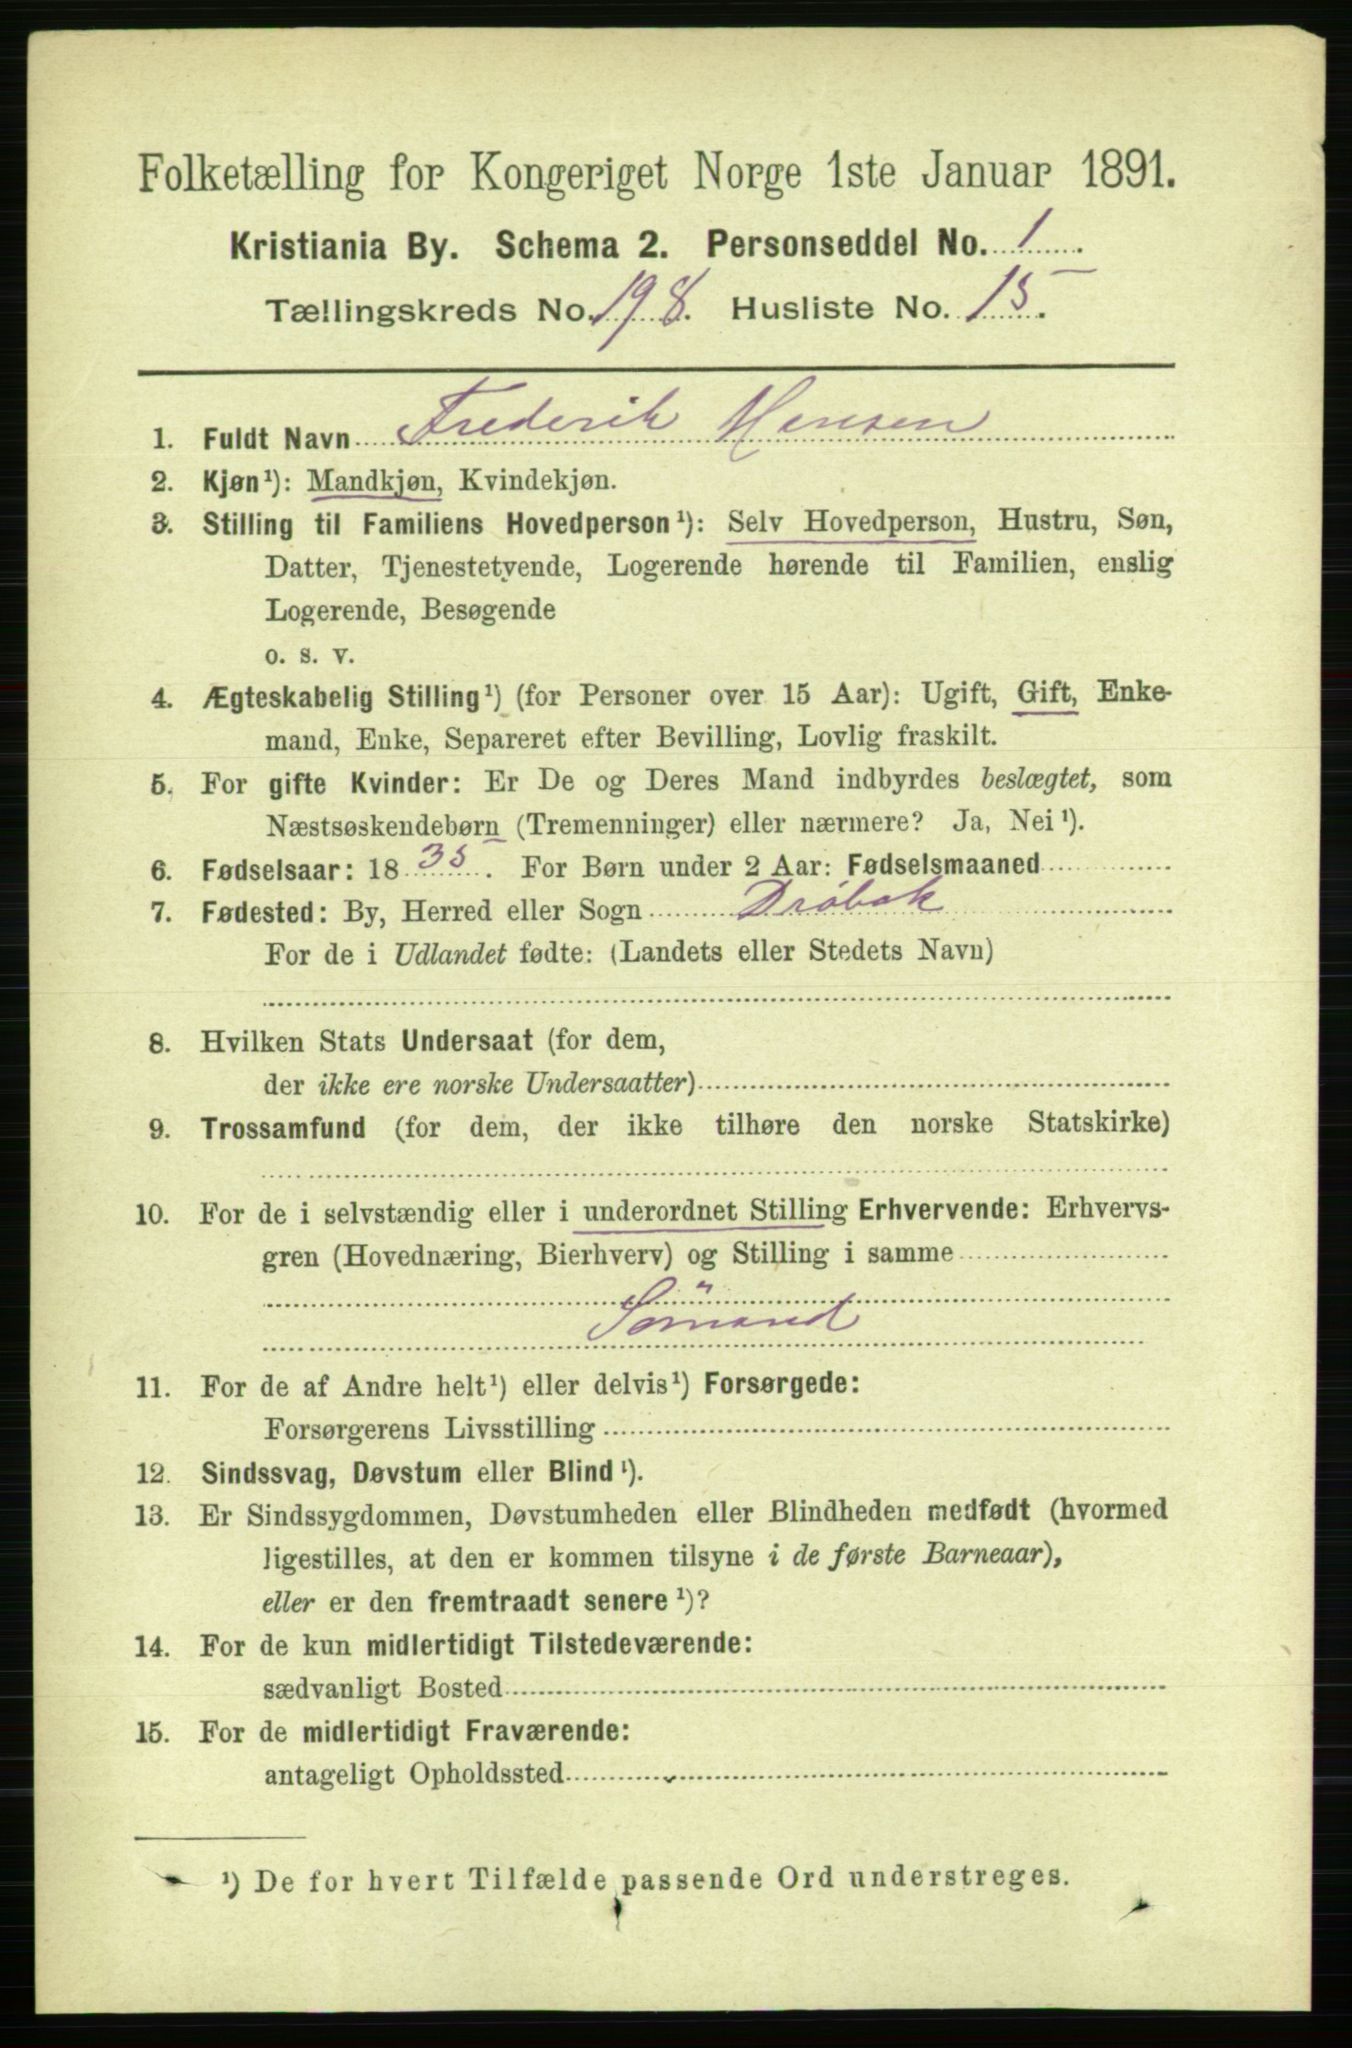 Folketælling for Kongeriget Norge 1ste Januar 1891.
Kristiania By. Schema 2. Personseddel No. 1.
Tællingskreds No. 198. Husliste No. 15.
1. Fuldt Navn Frederik Hansen
2. Kjøn¹): Mandkjøn, Kvindekjøn.
3. Stilling til Familiens Hovedperson¹): Selv Hovedperson, Hustru, Søn,
Datter, Tjenestetyende, Logerende hørende til Familien, enslig
Logerende, Besøgende
o. s. v.
4. Ægteskabelig Stilling¹) (for Personer over 15 Aar): Ugift, Gift, Enke-
mand, Enke, Separeret efter Bevilling, Lovlig fraskilt.
5. For gifte Kvinder: Er De og Deres Mand indbyrdes beslægtet, som
Næstsøskendebørn (Tremenninger) eller nærmere? Ja, Nei¹).
6. Fødselsaar: 1835. For Børn under 2 Aar: Fødselsmaaned
7. Fødested: By, Herred eller Sogn Dröbak
For de i Udlandet fødte: (Landets eller Stedets Navn)
8. Hvilken Stats Undersaat (for dem,
der ikke ere norske Undersaatter)
9. Trossamfund (for dem, der ikke tilhøre den norske Statskirke)
10. For de i selvstændig eller i underordnet Stilling Erhvervende: Erhvervs-
gren (Hovednæring, Bierhverv) og Stilling i samme
Sömand
11. For de af Andre helt¹) eller delvis¹) Forsørgede:
Forsørgerens Livsstilling
12. Sindssvag, Døvstum eller Blind¹).
13. Er Sindssygdommen, Døvstumheden eller Blindheden medfødt (hvormed
ligestilles, at den er kommen tilsyne i de første Barneaar),
eller er den fremtraadt senere¹)?
14. For de kun midlertidigt Tilstedeværende:
sædvanligt Bosted
15. For de midlertidigt Fraværende:
antageligt Opholdssted
¹) De for hvert Tilfælde passende Ord understreges.